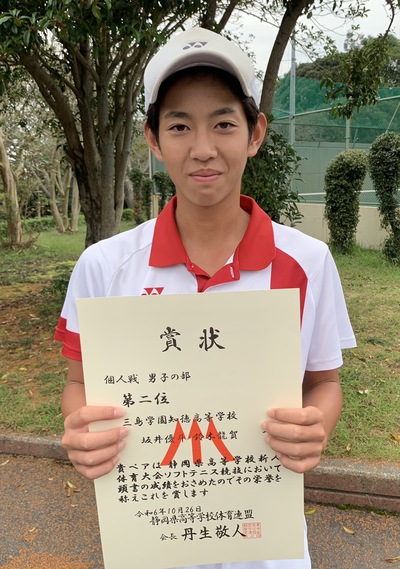 賞状
個人戦 男子の部
第二位
三島学園知徳高等学校
坂井優斗 鈴木龍賀
貴ペアは静岡県高等学校新人
体育大会ソフトテニス競技において
頭書の成績をおさめたのでその栄誉を
称えこれを賞します
令和6年10月26日
静岡県高等学校体育連盟
会長 丹生敬人